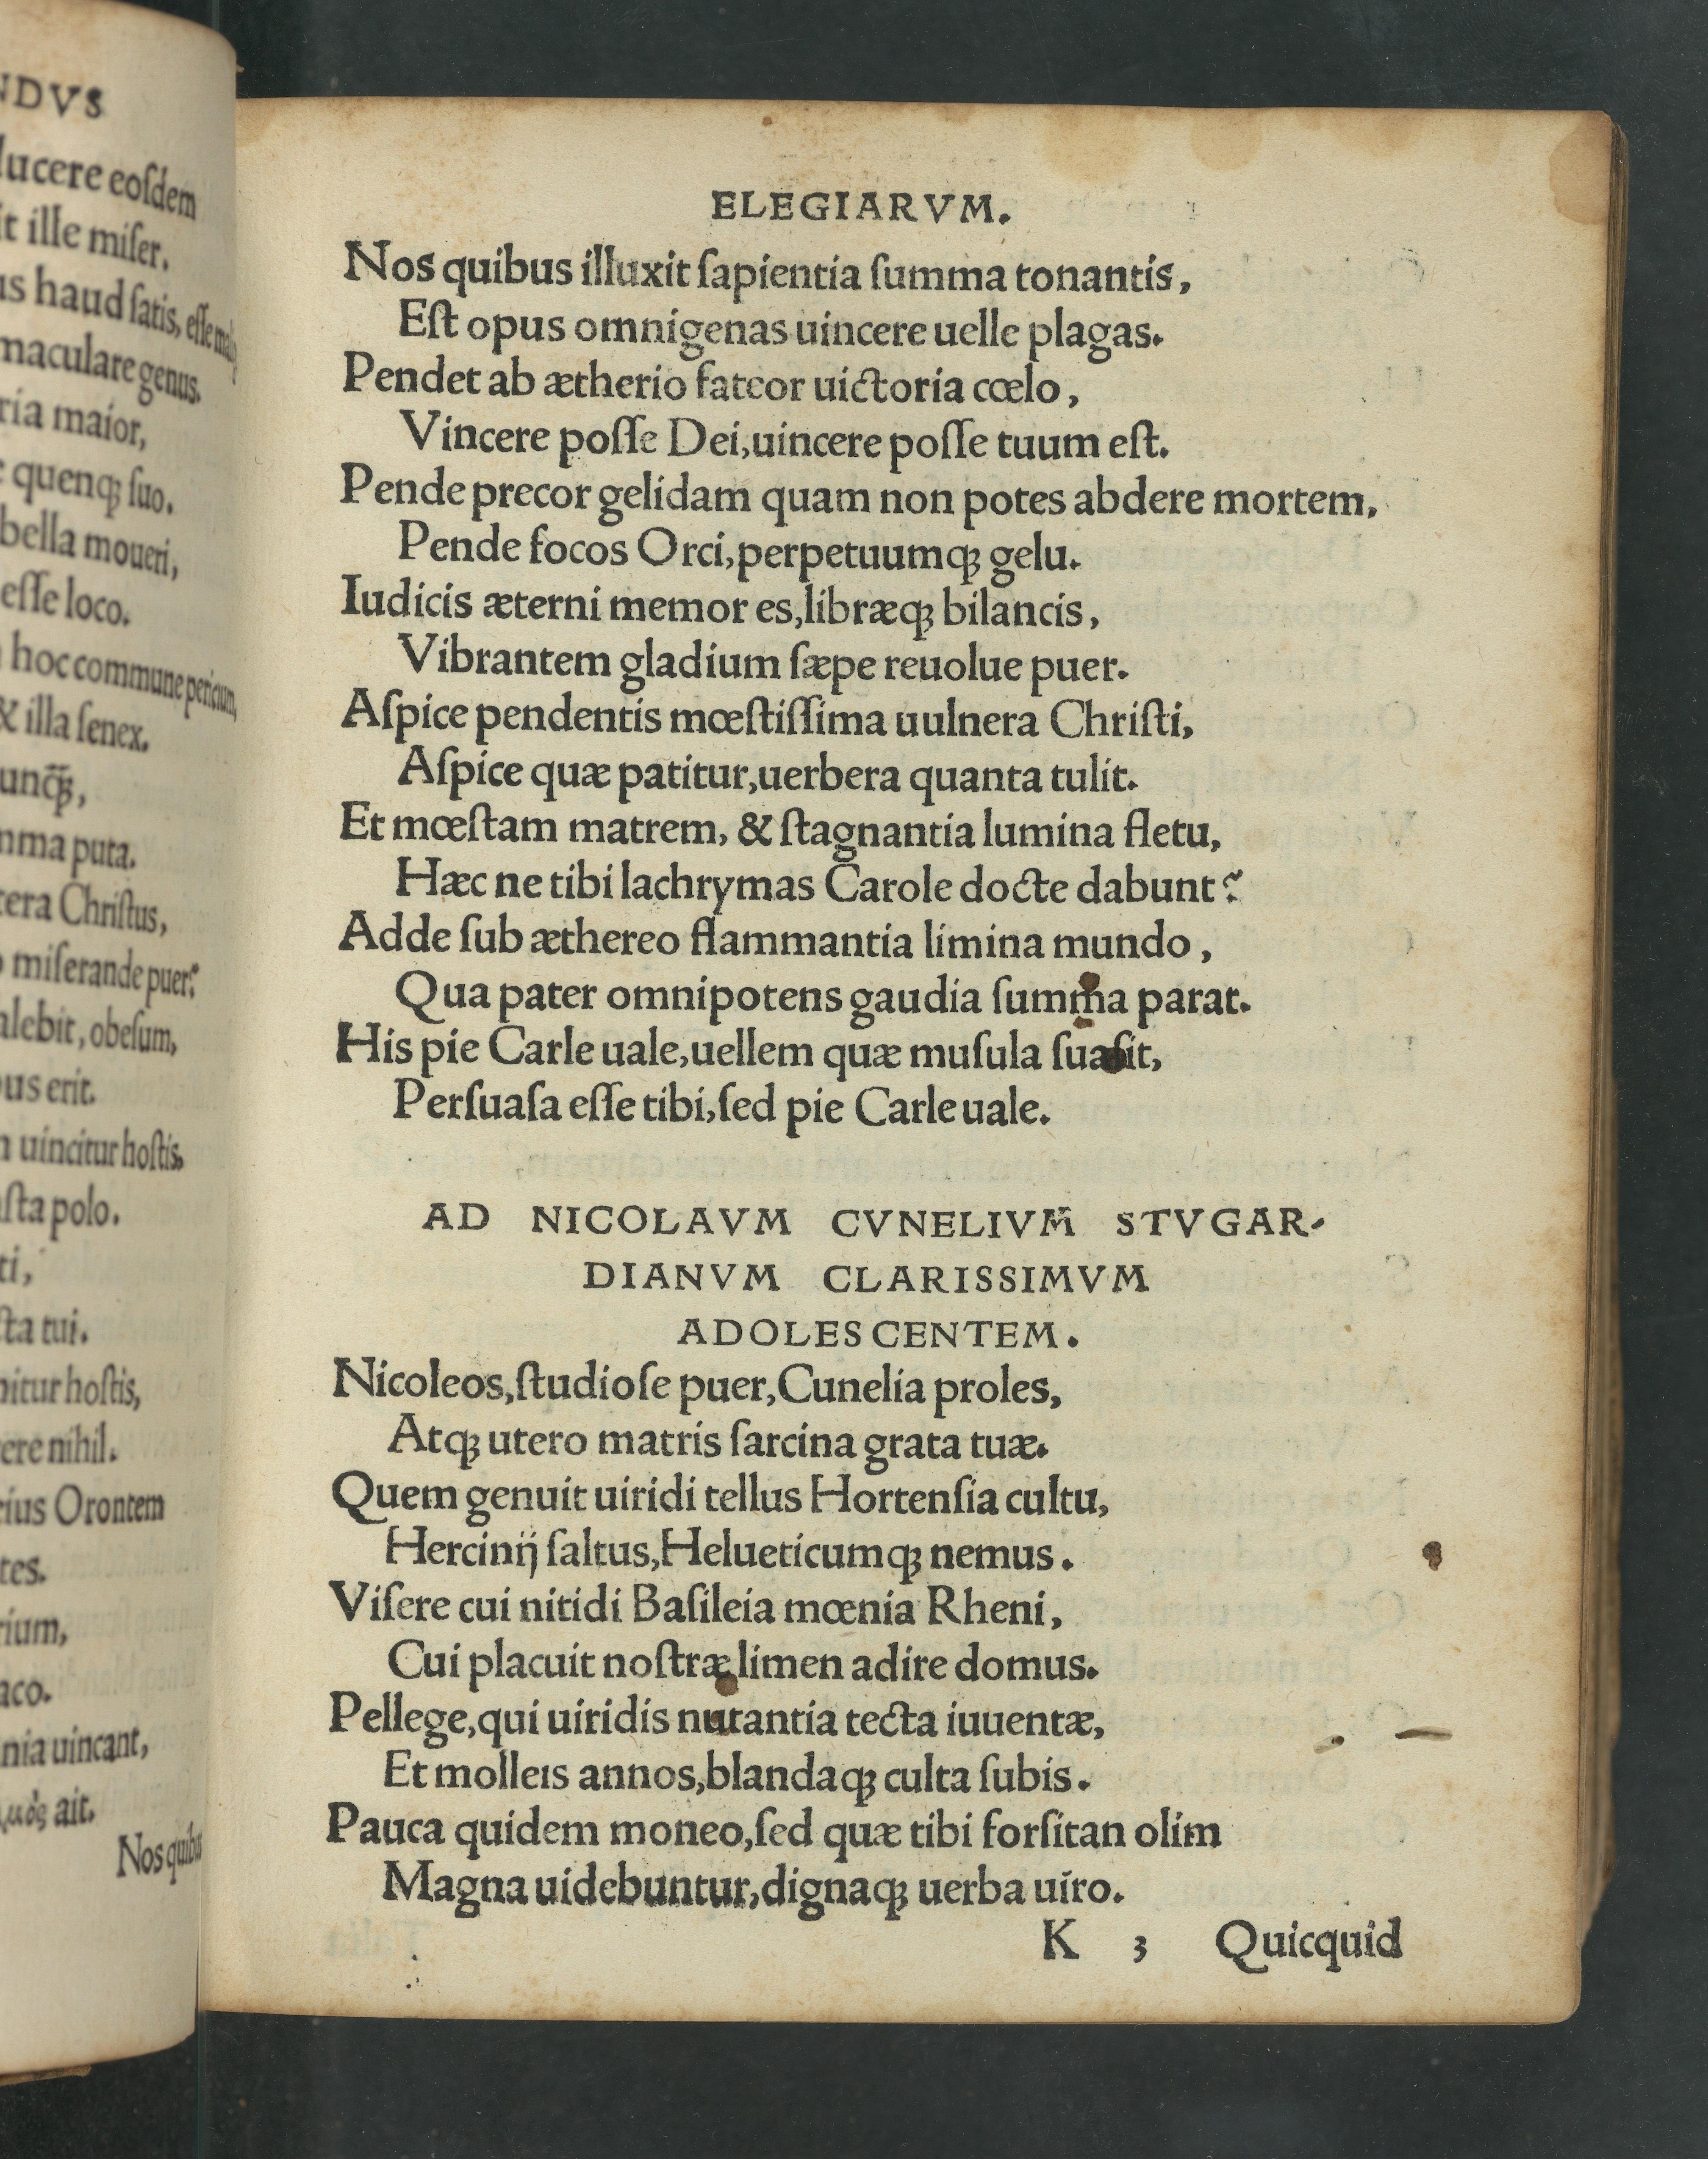 NDVS
lucere eoſdem
it ille miſer.
us haud ſatis, eſſe
maculare genus.
ria maior,
quenqꝫ ſuo.
bella moueri,
eſſe loco.
hoc commune
& illa ſenex.
unqꝫ̃,
mma puta.
tera Chriſtus,
o miſerande puer?
alebit, obeſum,
us erit.
n uincitur hoſtis,
aſta polo.
ti,
ſta tui.
nitur hoſtis,
ere nihil.
rius Orontem
tes.
rium,
aco.
nia uincant,
ait.
Nos quibus
ELEGIARVM.
Nos quibus illuxit ſapientia ſumma tonantis,
Eſt opus omnigenas uincere uelle plagas.
Pendet ab ætherio fateor uictoria cœlo,
Vincere poſſe Dei,uincere poſſe tuum eſt.
Pende precor gelidam quam non potes abdere mortem,
Pende focos Orci,perpetuumqꝫ gelu.
Iudicis æterni memor es,libræqꝫ bilancis,
Vibrantem gladium ſæpe reuolue puer.
Aſpice pendentis mœſtiſſima uulnera Chriſti,
Aſpice quæ patitur,uerbera quanta tulit.
Et mœſtam matrem, & ſtagnantia lumina fletu,
Hæc ne tibi lachrymas Carole docte dabunt?
Adde ſub æthereo flammantia limina mundo,
Qua pater omnipotens gaudia ſumma parat.
His pie Carle uale,uellem quæ muſula ſuaſit,
Perſuaſa eſſe tibi,ſed pie Carle uale.
AD NICOLAVM CVNELIVM STVGAR-
DIANVM CLARISSIMVM
ADOLESCENTEM.
Nicoleos,ſtudioſe puer,Cunelia proles,
Atqꝫ utero matris ſarcina grata tuæ.
Quem genuit uiridi tellus Hortenſia cultu,
Hercinij ſaltus,Helueticumqꝫ nemus.
Viſere cui nitidi Baſileia mœnia Rheni,
Cui placuit noſtræ limen adire domus.
Pellege,qui uiridis nutantia tecta iuuentæ,
Et molleis annos,blandaqꝫ culta ſubis.
Pauca quidem moneo,ſed quæ tibi forſitan olim
Magna uidebuntur,dignaqꝫ uerba uiro.
K 3 Quicquid